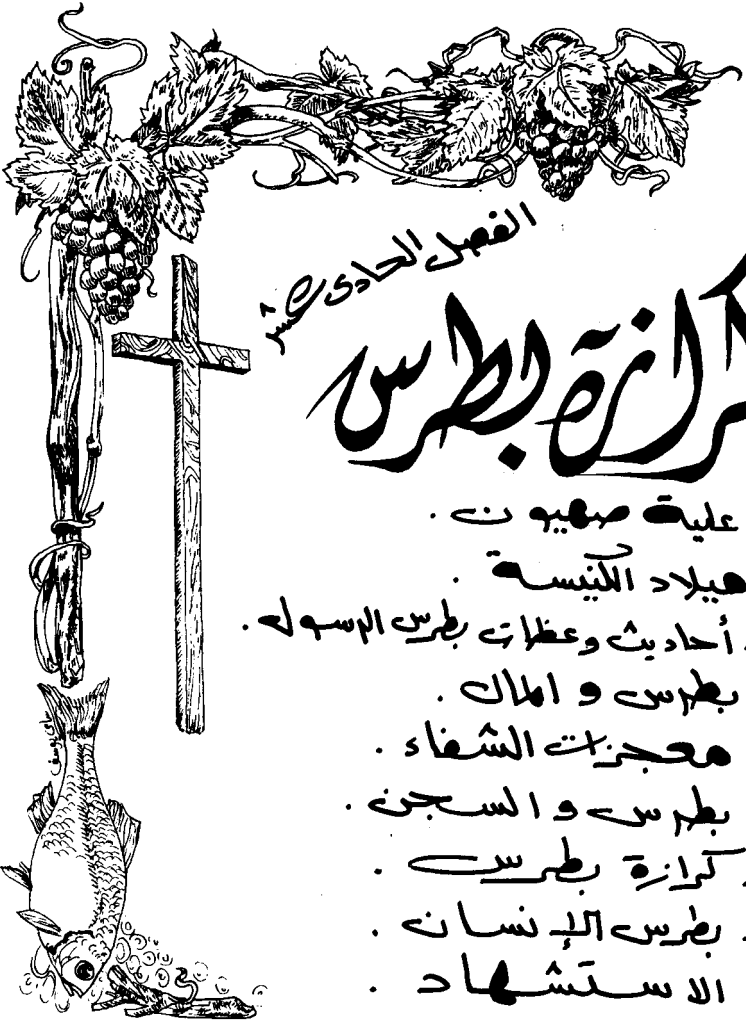 الفصل الحادى عشر
كرازة بطرس
علية صهيون .
ميلاد الكنيسة .
. أحاديث وعظات بطرس الرسول .
بطرس و المال .
معجزات الشفاء .
بطرس و السجن .
. كرازة بطرس .
. بطرس الإنسان .
الاستشهاد .